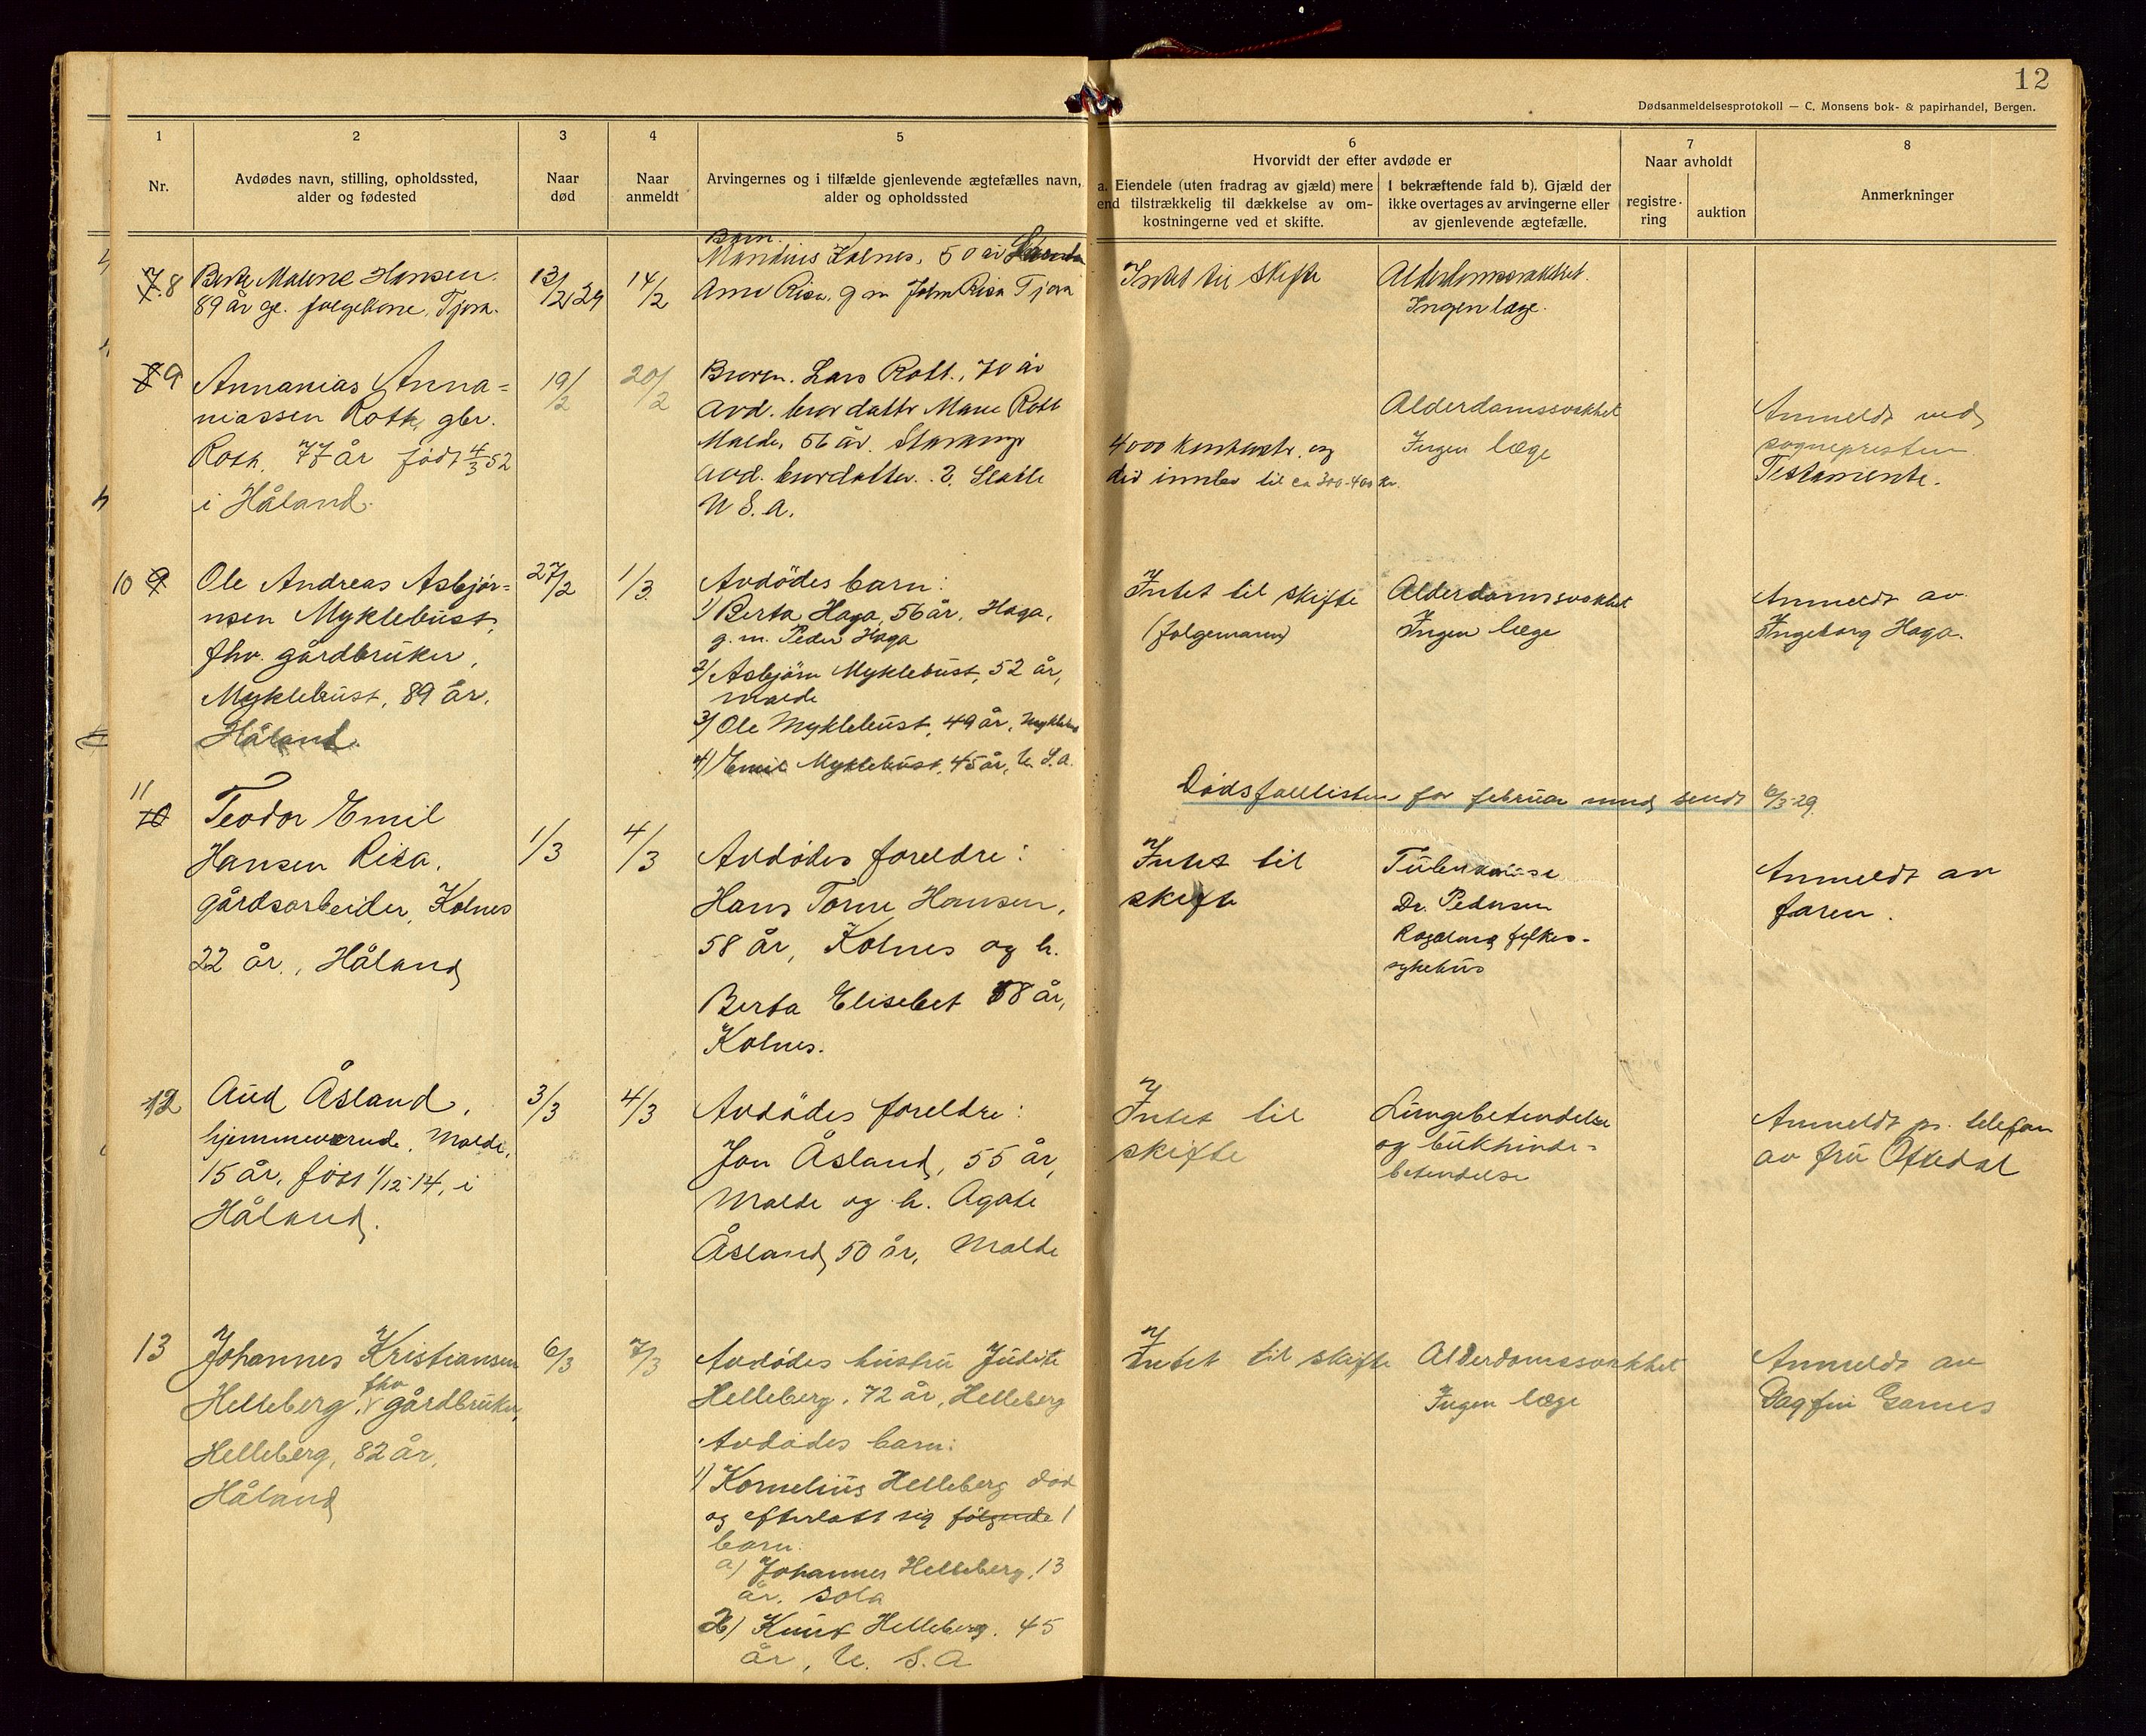 12
Dødsanmeldelsesprotokoll — C. Monsens bok- & papirhandel, Bergen.
1
Nr.
2
Avdødes navn, stilling, opholdssted,
alder og fødested
3
Naar
død
4
Naar
anmeldt
5
Arvingernes og i tilfælde gjenlevende ægtefælles navn,
alder og opholdssted
6
Hvorvidt der efter avdøde er
a. Eiendele (uten fradrag av gjæld) mere
end tilstrækkelig til dækkelse av om-
kostningerne ved et skifte.
I bekræftende fald b). Gjæld der
ikke overtages av arvingerne eller
av gjenlevende ægtefælle.
7
Naar avholdt
registre-
ring
auktion
8
Anmerkninger
7. 8
Berte Malene Hansen.
89 år gl. følgekone, Tjora.
13/2 29
14/2
Barn.
Mandius Kolnes, 50 år
Arne Risa, g m John Risa Tjora
Intet til skifte
Alderdomssvakhet.
Ingen læge.
8 9
Annanias Anna=
niassen Roth, gbr.
Roth, 77 år født 4/3 52
i Håland.
19/2
20/2
Broren. Lars Rott., 70 år
Avd. brordatter Marie Rott
Malde, 56 år. Stavanger
Avd. brordatter. 2, Seattle
U S. A.
4000 kr
innbo til ca 300-400 kr.
Alderdomssvakhet
Ingen læge
Anmeldt ved
sognepresten
Testamente.
10 9
Ole Andreas Asbjør=
nsen Myklebust,
fhv. gårdbruker,
Myklebust, 89 år.
Håland.
27/2
1/3
Avdödes barn:
1) Berta Haga, 56 år, Haga,
g. m. Peder Haga
2) Asbjörn Myklebust, 52 år,
Malde
3) Ole Myklebust, 49 år, Myklebust
4) Emil Myklebust, 45 år, U. S. A.
Intet til skifte
(følgemann)
Alderdomssvakhet
Ingen læge
Anmeldt av
Ingeborg Haga.
Dødsfallisten for februar mnd sendt 6/3-29.
11
10
Teodor Emil
Hansen Risa,
gårdsarbeider, Kolnes
22 år, Håland
1/3
4/3
Avdödes foreldre:
Hans Torne Hansen,
58 år, Kolnes og h.
Berta Elisebet 58 år,
Kolnes.
Intet til
skifte
Tuberkulose
Dr. Pedersen
Rogaland fylkes-
sykehus
Anmeldt av
faren.
12
Aud Åsland,
hjemmeværende, Malde,
15 år, född 1/12-14, i
Håland.
3/3
4/3
Avdödes foreldre:
Jon Åsland, 55 år,
Malde og h. Agate
Åsland, 50 år, Malde
Intet til
skifte
Lungebetendelse
og bukhinde-
betendelse
Anmeldt pr. telefon
av fru Oftedal
13
Johannes Kristiansen
Helleberg, fhv gårdbruker,
Helleberg, 82 år,
Håland
6/3
7/3
Avdödes hustru Judite
Helleberg, 72 år, Helleberg
Avdödes barn:
1) Kornelius Helleberg död
og efterlatt sig følgende 1
barn:
a) Johannes Helleberg, 13
år, Sola
2) Knut Helleberg, 45
år, U. S. A
Intet til skifte
Alderdomssvakhet
Ingen læge
Anmeldt av
Dagfin Games